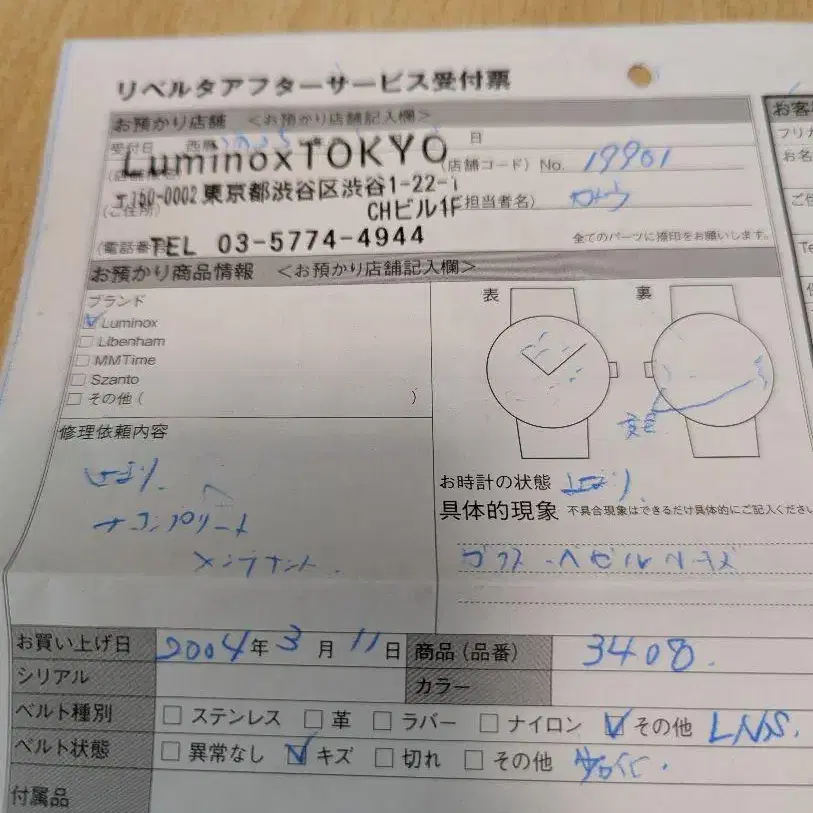 リベルタアフターサービス受付票
お預かり店舗 <お預かり店舗記入欄>
受付日 西暦 日
LuminoxTOKYO (店舗コード) No. 19901
〒150-0002 東京都渋谷区渋谷1-22-1
(ご住所) CHビル1F 担当者名)
(電話番 TEL 03-5774-4944 全てのパーツに捺印をお願いします。
お預かり商品情報 <お預かり店舗記入欄>
ブランド
Luminox
Libenham
MMTime
Szanto
その他 ( )
表 裏
修理依頼内容
コンプリート
メンテナント.
お時計の状態
具体的現象 不具合現象はできるだけ具体的にご記入ください
ガラス・ベゼル
お買い上げ日 2004年3月11日 商品(品番) 3408.
シリアル カラー
ベルト種別 ステンレス 革 ラバー ナイロン その他
ベルト状態 異常なし キズ 切れ その他
付属品
お客
フリカ
お名
ご住
Te